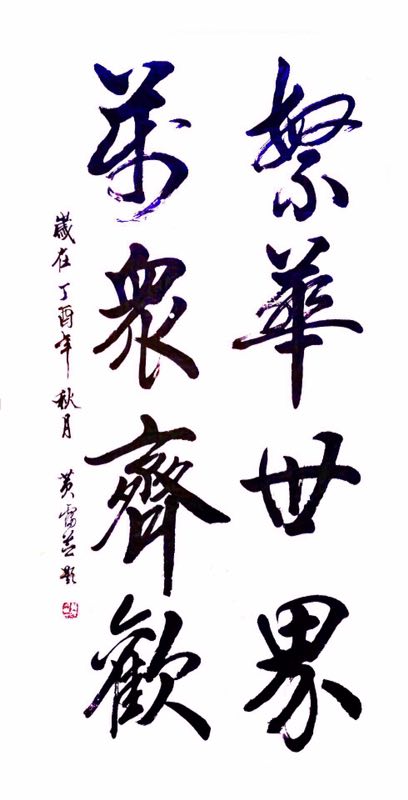 繁華世界
萬衆齊歡
歲在丁酉年秋月 黄雷並題